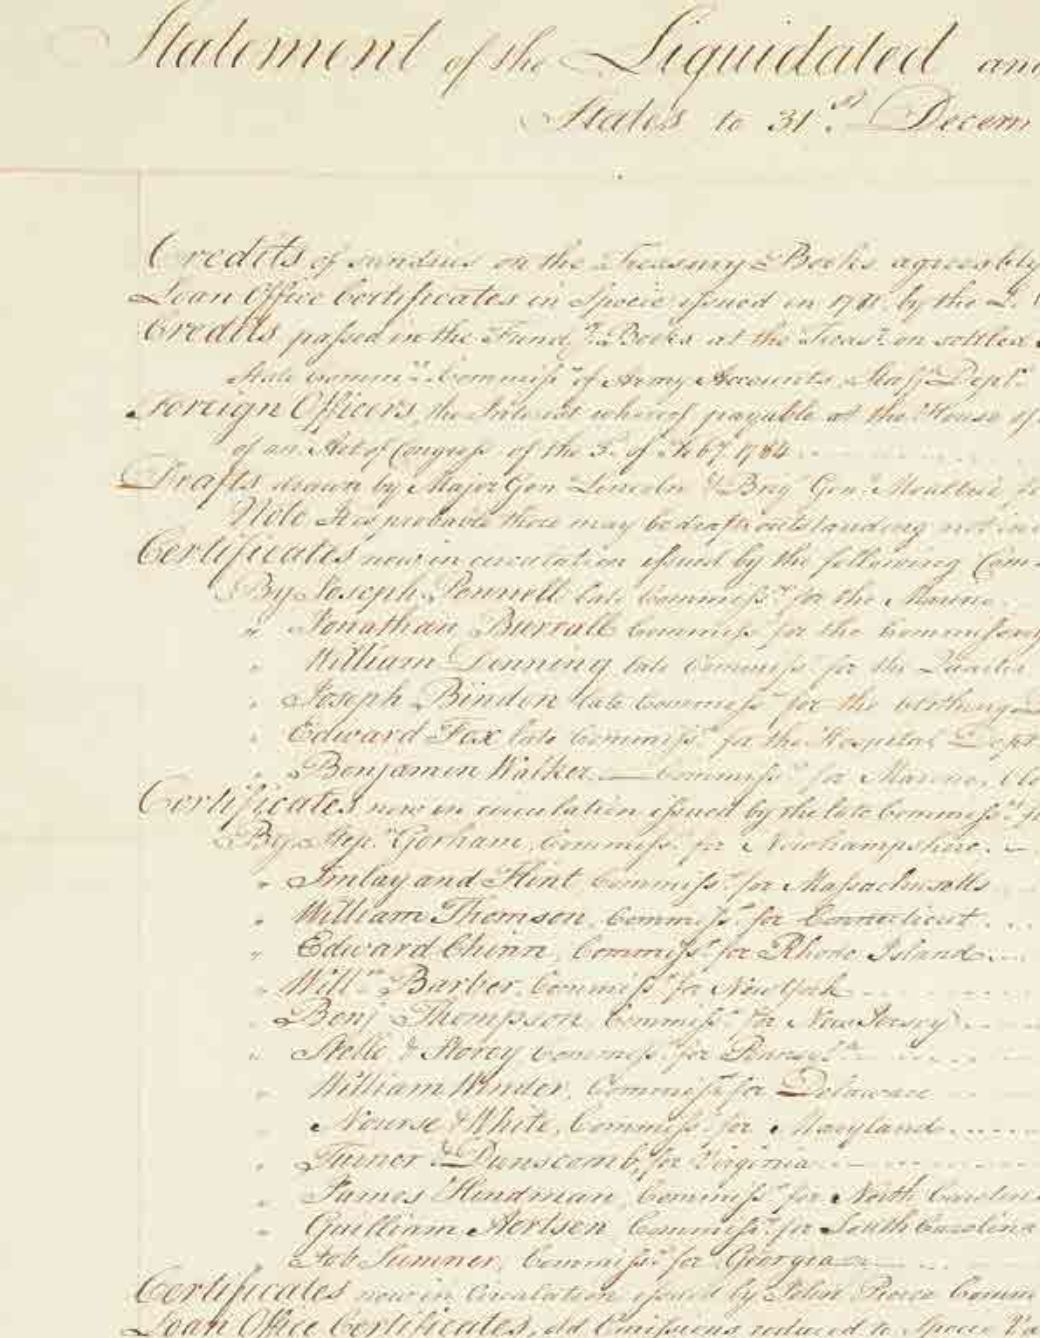 Statement of the Liquidated and
States to 31st Decem
Credits of sundries on the Treasury Books agreeably
Loan Office Certificates in Specie issued in 1781 by the
Credits passed in the Fund.g Books at the Treas.y on settled
State Commis.rs Commiss.rs of Army Accounts, Staff Dept.
Foreign Officers, the Interest whereof payable at the House of
of an Act of Congress of the 3.d of Feb.y 1784
Drafts drawn by Major Gen Lincoln & Brig Gen.l Moultrie,
Note It is probable there may be drafts outstanding not
Certificates now in circulation issued by the following Com
By Joseph Pennell late Commiss.r for the Marine.
" Jonathan Burrall Commiss.r for the Commissary
" William Denning late Commiss.r for the Quarter
" Joseph Bindon late Commiss.r for the Clothing D
" Edward Fox late Commiss.r for the Hospital Dept
" Benjamin Walker Commiss.r for Marine, Clo
Certificates now in circulation issued by the late Commiss.rs
By Step.n Gorham, Commiss.r for Newhampshire.
" Imlay and Flint Commiss.r for Massachusetts
" William Thomson, Commiss.r for Connecticut
" Edward Chinn, Commiss.r for Rhode Island
" Will.m Barber, Commiss.r for New York
" Benj Thompson, Commiss.r for New Jersey
" Stelle & Storey Commiss.r for Pennsyl.a
" William Winder, Commiss.r for Delaware
" Nourse & White, Commiss.r for Maryland
" Turner & Dunscomb, for Virginia
" James Hindman, Commiss.r for North Carolin
" Guilliam Aertsen Commiss.r for South Carolina
" Job Sumner, Commiss.r for Georgia
Certificates now in Circulation issued by John Pierce Comm
Loan Office Certificates, old Emissions reduced to Specie Va